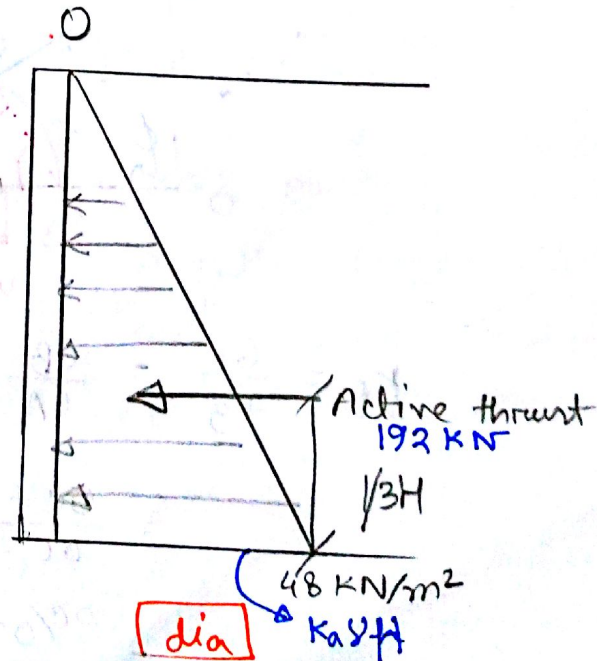 O
Active thrust
192 KN
1/3H
48 KN/m²
KaγH
dia